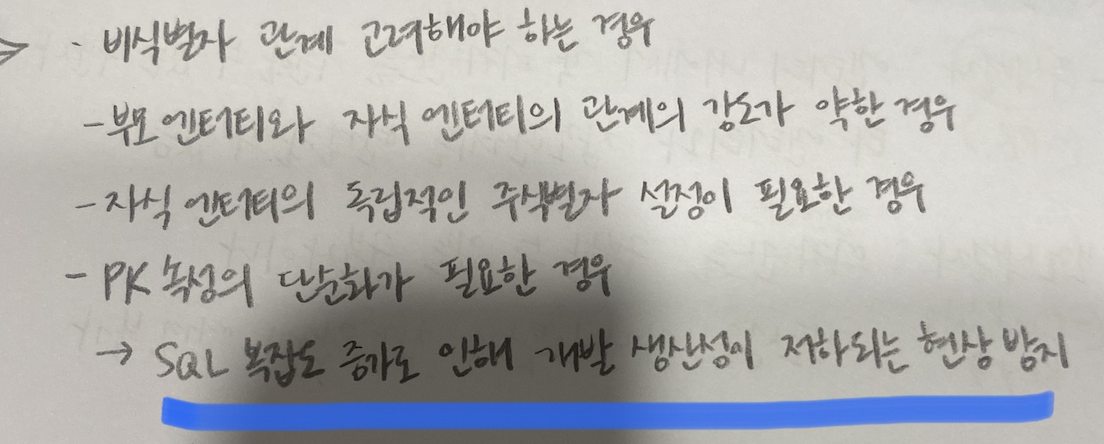 · 비식별자 관계 고려해야 하는 경우
- 부모 엔터티와 자식 엔터티의 관계의 강도가 약한 경우
- 자식 엔터티의 독립적인 주식별자 설정이 필요한 경우
- PK 속성의 단순화가 필요한 경우
→ SQL 복잡도 증가로 인해 개발 생산성이 저하되는 현상 방지